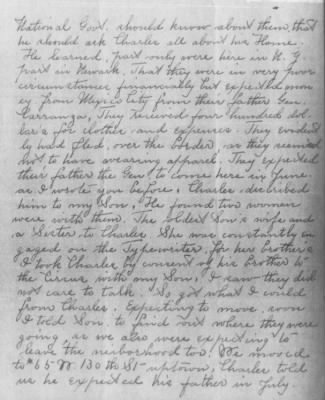 National Govt. should know about them, that
he should ask Charles all about his Home.
He learned, part only were here in N. Y.
part in Newark. That they were in very poor
circumstances financially but expected mon
ey from Mexico City from their father Gen.
Carranza, They received four hundred dol
lars for clothes and expenses. They evident
ly had fled, over the border, as they seemed
not to have awearing apparel. They expected
their father the Gen. to come here in June.
as I wrote you before. Charles discribed
him to my Son. He found two women
were with them. The oldest Son's wife and
a Sister to Charles. She was constantly en
gaged on the Typewriter, for her brothers
I took Charles by consent of his brother to
the Circus, with my Son, I saw they did
not care to talk. So got what I could
from Charles. Expecting to move, soon
I told Son to find out where they were
going, as we also were expecting to
leave the neiborhood too. We moved
to #65 W. 130 th St- uptown, Charles told
us he expected his father in July.